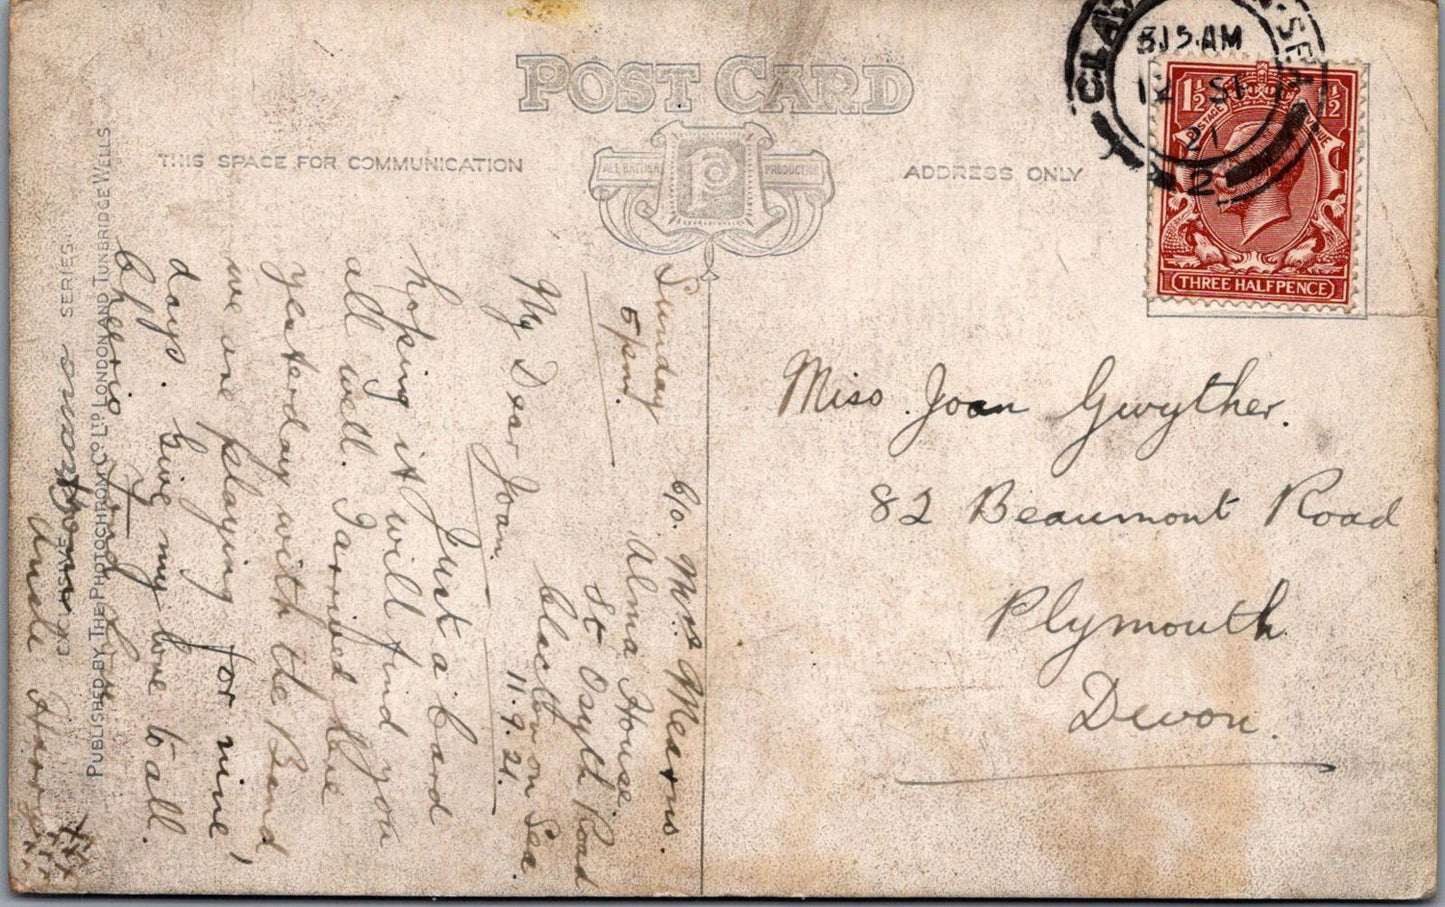 POST CARD
THIS SPACE FOR COMMUNICATION
ALL BRITISH
P
PRODUCTION
ADDRESS ONLY
5.15.AM
12 SP
21
2
1½
POSTAGE
REVENUE
THREE HALFPENCE
Miss. Joan Gwyther.
82 Beaumont Road
Plymouth
Devon.
c/o. Mrs Mearns.
Alma House.
St Osyth Road
Clacton on Sea.
11.9.21.
Sunday
5pm.
My Dear Joan.
Just a card
hoping it will find you
all well. I arrived here
yesterday with the Band
we are playing for nine
days. Give my love to all.
Cheerio
Uncle Harry
xxx
SERIES.
PUBLISHED BY THE PHOTOCHROM CO. LTD LONDON AND TUNBRIDGE WELLS.